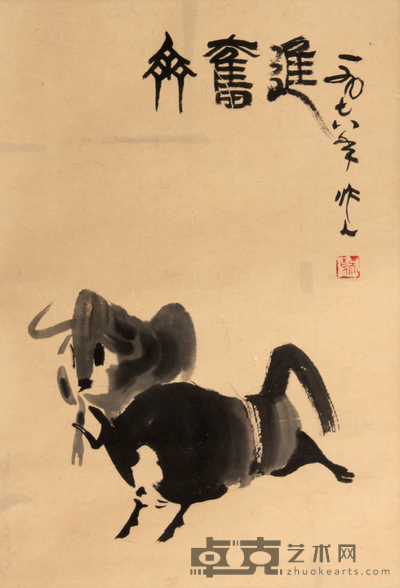 齊奮進
一九七八年 作人
卓克艺术网
zhuokearts.com